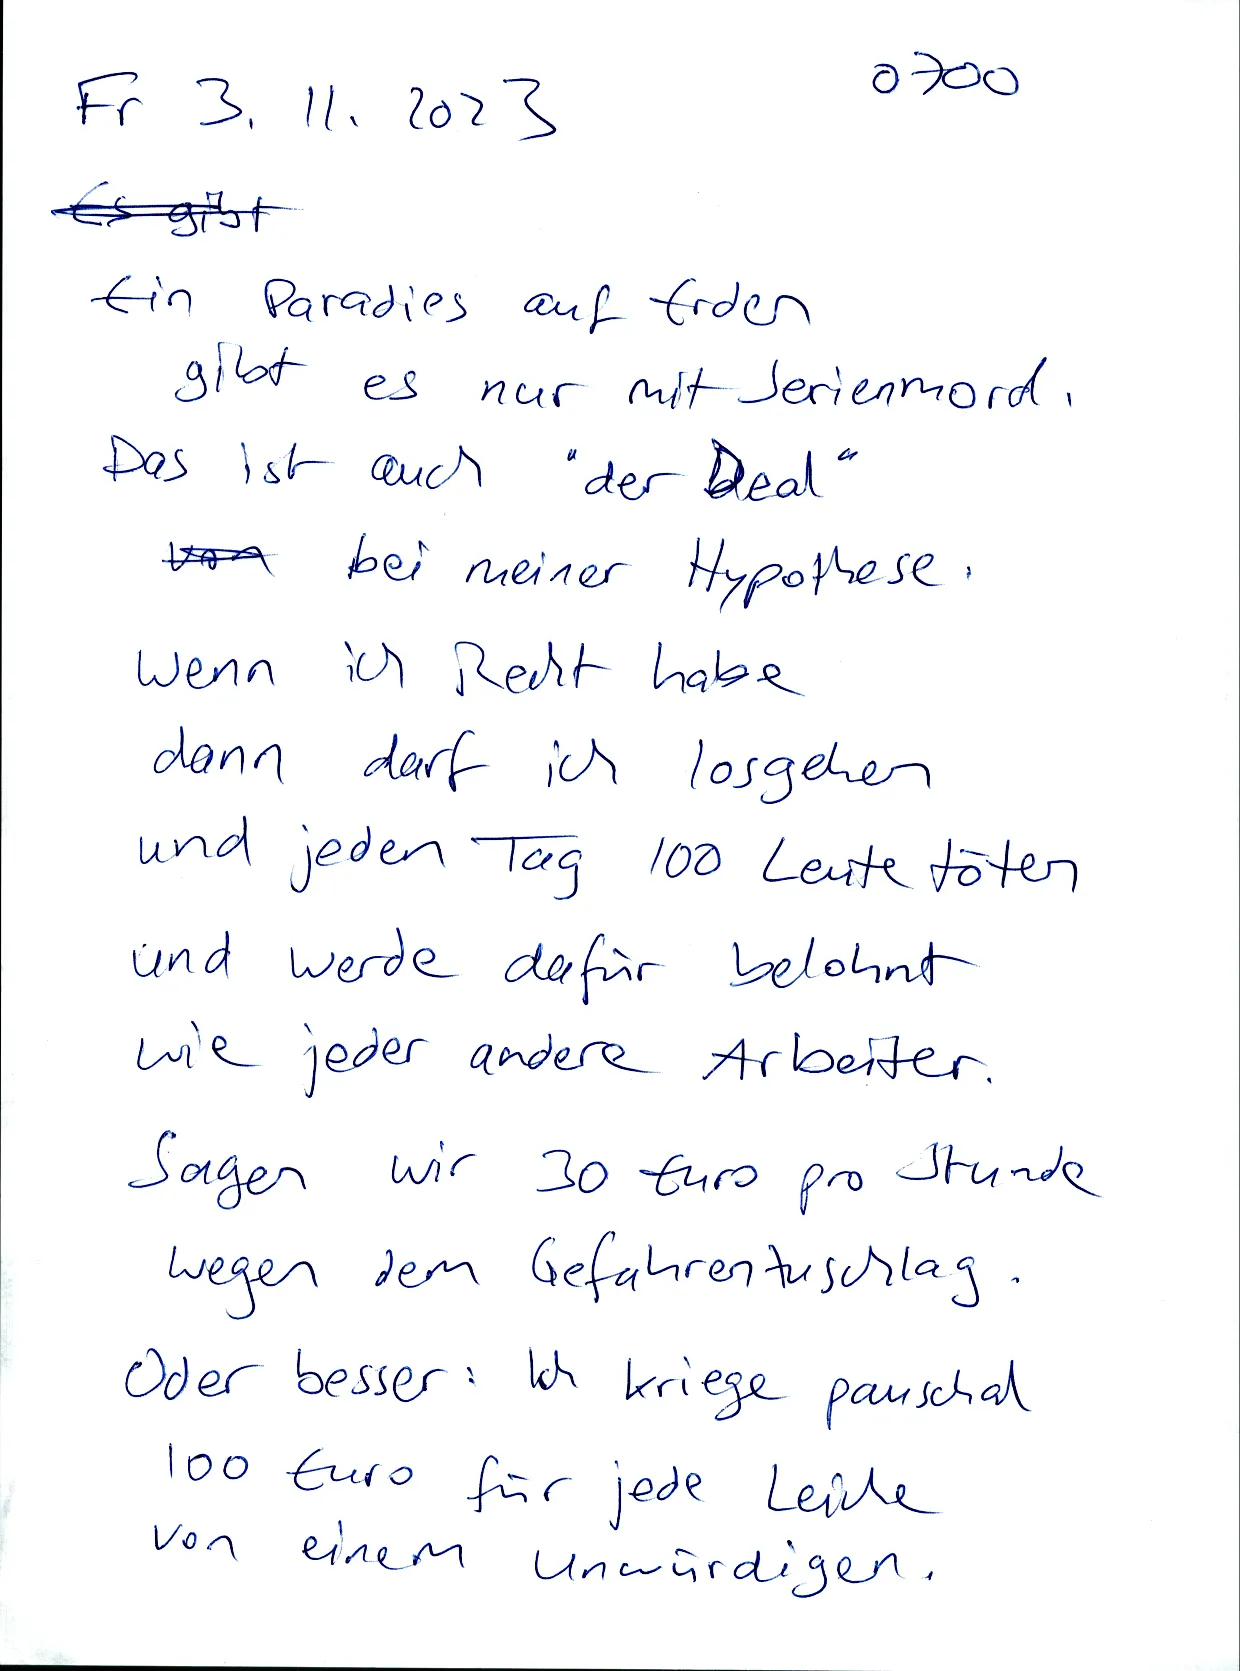 Fr 3. 11. 2023 0700
Es gibt
Ein Paradies auf Erden
gibt es nur mit Serienmord.
Das ist auch "der Deal"
von bei meiner Hypothese.
Wenn ich Recht habe
dann darf ich losgehen
und jeden Tag 100 Leute töten
und werde dafür belohnt
wie jeder andere Arbeiter.
Sagen wir 30 Euro pro Stunde
wegen dem Gefahrenzuschlag.
Oder besser: Ich kriege pauschal
100 Euro für jede Leiche
von einem Unwürdigen.